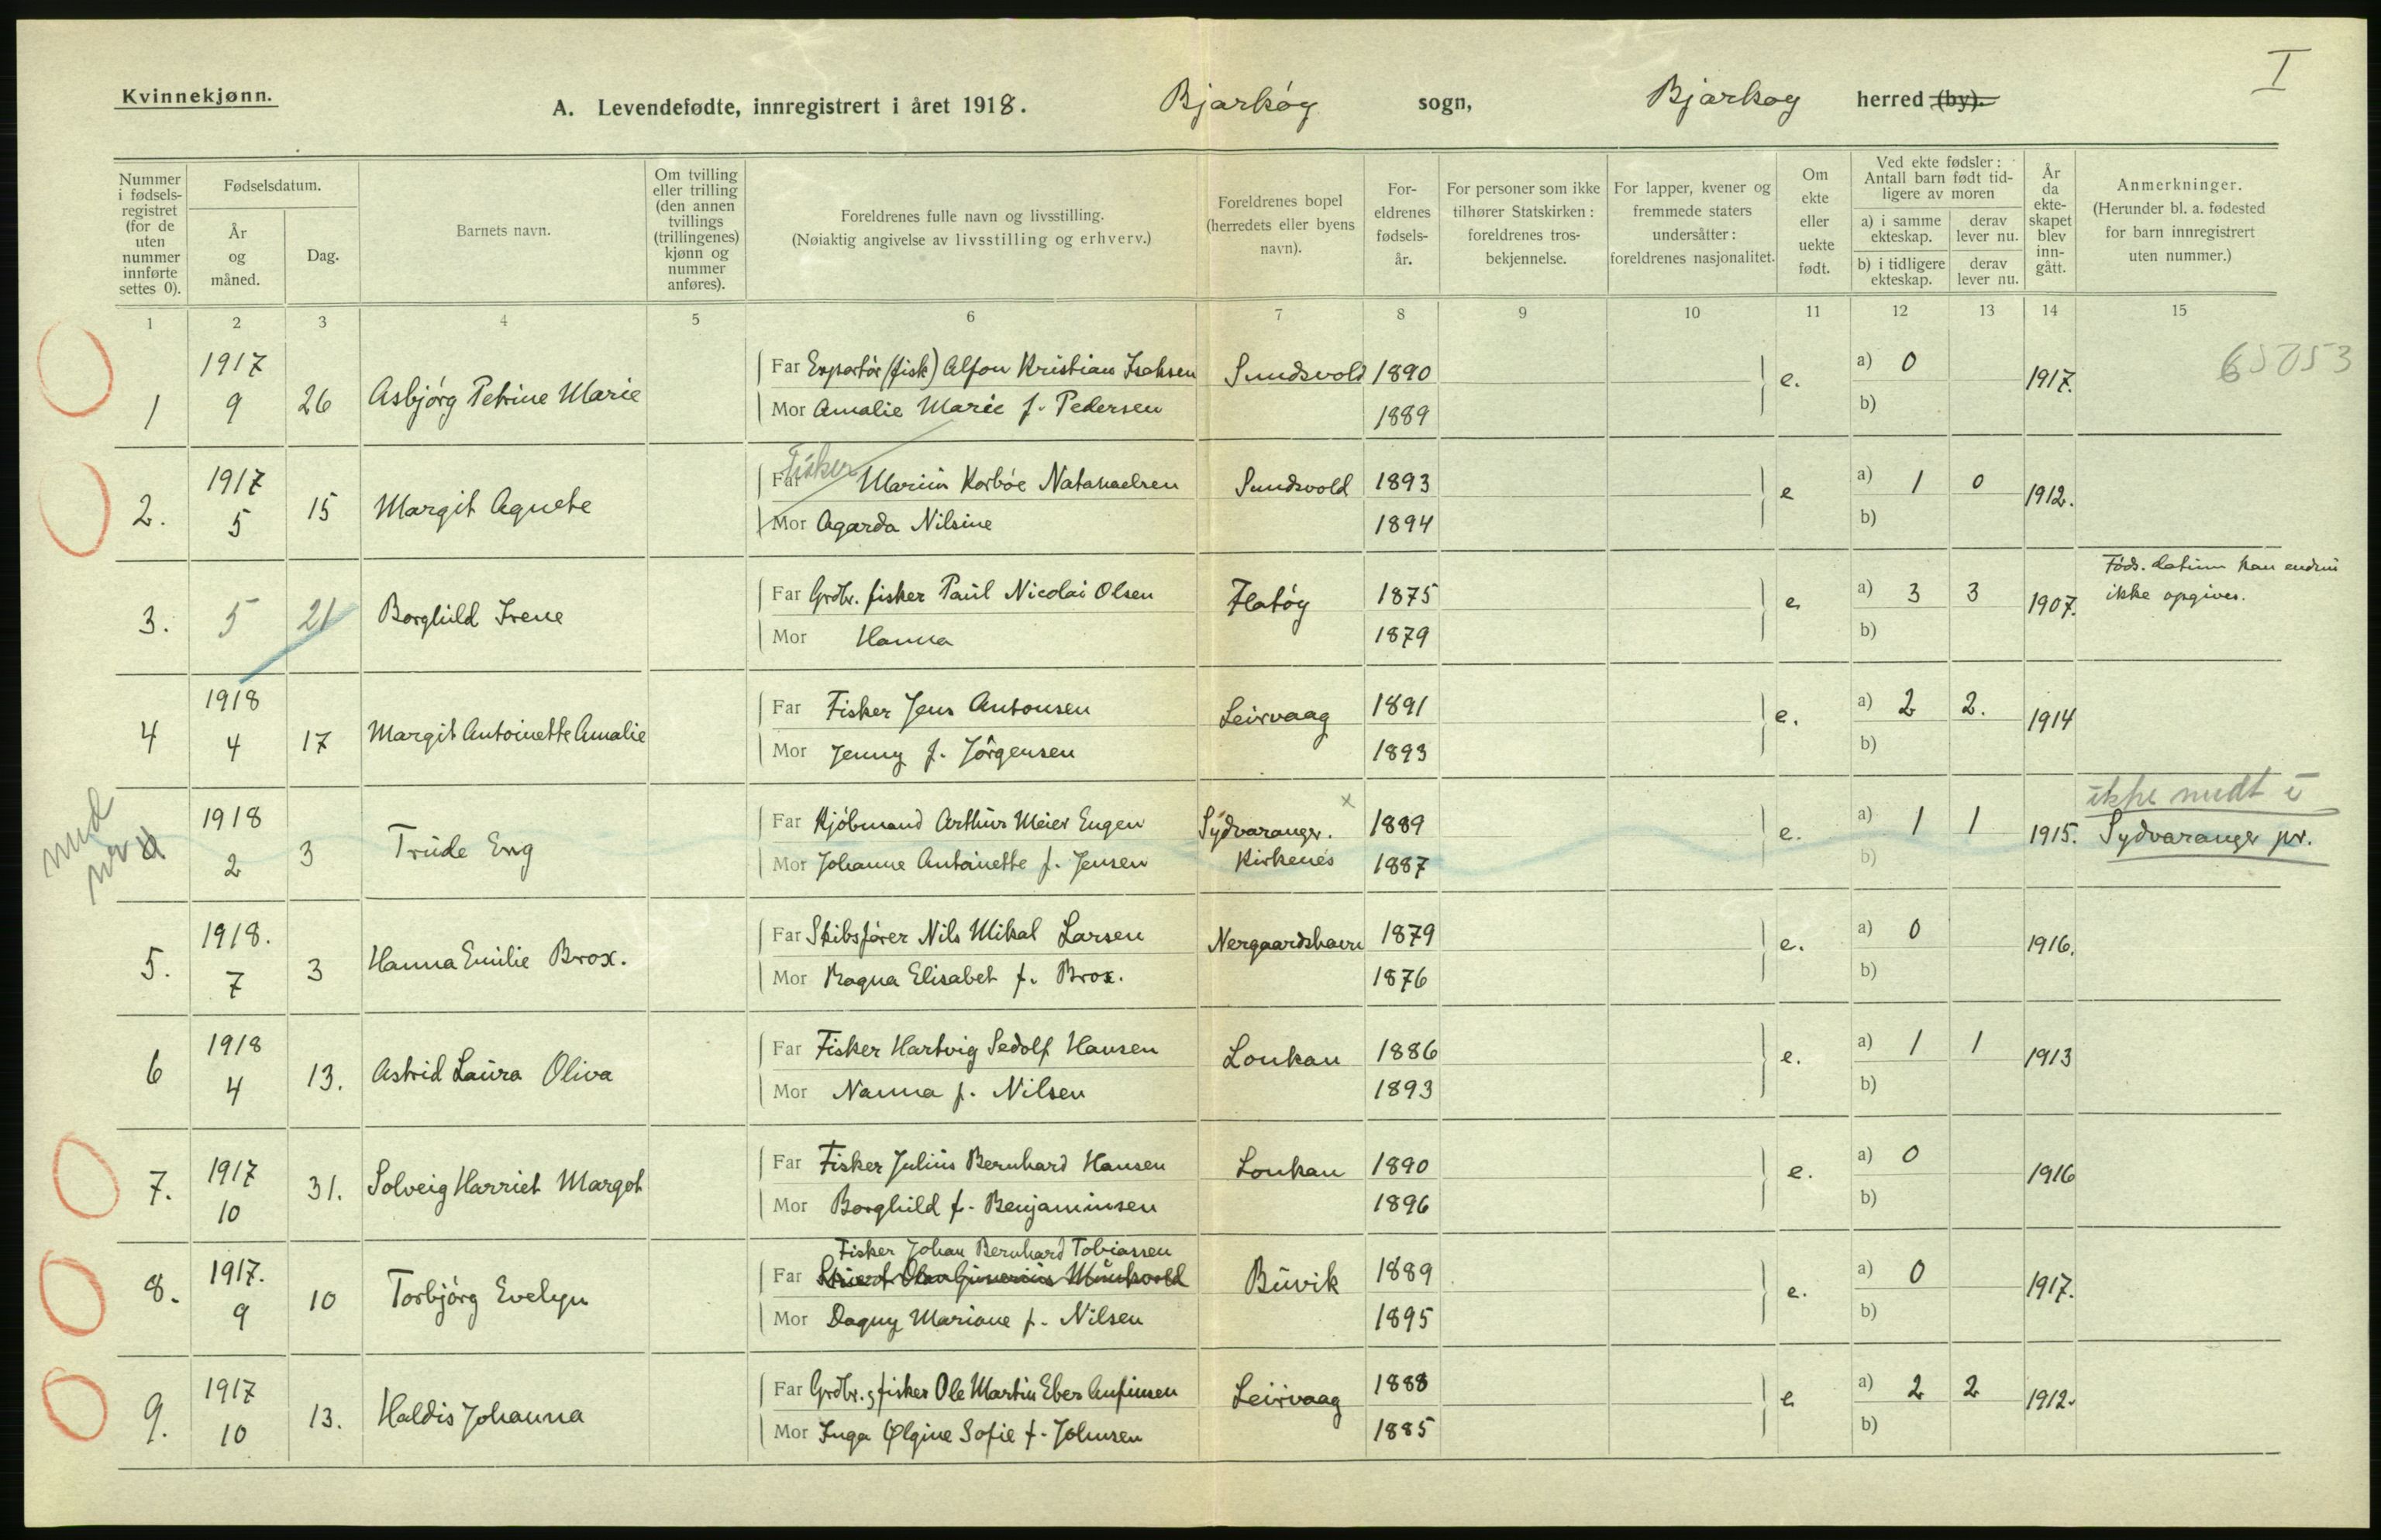 I
Kvinnekjønn.
A. Levendefødte, innregistrert i året 1918. Bjarkøy sogn, Bjarkøy herred (by).
Nummer i fødsels-registret (for de uten nummer innførte settes 0).
Fødselsdatum.
År og måned.
Dag.
Barnets navn.
Om tvilling eller trilling (den annen tvillings (trillingenes) kjønn og nummer anføres).
Foreldrenes fulle navn og livsstilling.
(Nøiaktig angivelse av livsstilling og erhverv.)
Foreldrenes bopel (herredets eller byens navn).
For-eldrenes fødsels-år.
For personer som ikke tilhører Statskirken: foreldrenes tros-bekjennelse.
For lapper, kvener og fremmede staters undersåtter: foreldrenes nasjonalitet.
Om ekte eller uekte født.
Ved ekte fødsler: Antall barn født tid-ligere av moren
a) i samme ekteskap.
derav lever nu.
b) i tidligere ekteskap.
derav lever nu.
År da ekte-skapet blev inn-gått.
Anmerkninger.
(Herunder bl. a. fødested for barn innregistrert uten nummer.)
1 2 3 4 5 6 7 8 9 10 11 12 13 14 15
1 1917 9 26 Asbjørg Petrine Marie
Far Exportør (fisk) Alfon Kristian Isaksen Sundsvold 1890 e. a) 0 1917. 65053
Mor Amalie Marie f. Pedersen 1889 b)
2. 1917 5 15 Margit Agnete
Fisker
Far Marius Korbøe Natanaelsen Sundsvold 1893 e a) 1 0 1912.
Mor Agarda Nilsine 1894 b)
3. 5 21 Borghild Irene
Far Grdbr. fisker Paul Nicolai Olsen Flatøy 1875 e. a) 3 3 1907. Føds. datum kan endnu ikke opgives.
Mor Hanna 1879 b)
4 1918 4 17 Margit Antoinette Amalie
Far Fisker Jens Antonsen Leirvaag 1891 e. a) 2 2. 1914
Mor Jenny f. Jörgensen 1893 b)
0 1918 2 3 Trude Eng
Far Kjøbmand Arthur Meier Eugen Sydvaranger. x 1889 e. a) 1 1 1915. Sydvaranger pr.
Mor Johanne Antoinette f. Jensen Kirkenes 1887 b)
5. 1918. 7 3 Hanna Emilie Brox.
Far Skibsfører Nils Mikal Larsen Nergaardshavn 1879 e. a) 0 1916.
Mor Magna Elisabet f. Brox. 1876 b)
6 1918 4 13. Astrid Laura Oliva
Far Fisker Hartvig Sedolf Hansen Loukan 1886 e. a) 1 1 1913
Mor Nanna f. Nilsen 1893 b)
7. 1917 10 31. Solveig Harriet Margot
Far Fisker Julius Bernhard Hansen Loukan 1890 e. a) 0 1916
Mor Borghild f. Benjaminsen 1896 b)
8. 1917. 9 10 Torbjørg Evelyn
Fisker Johan Bernhard Tobiassen
Far Buvik 1889 e. a) 0 1917.
Mor Dagny Mariane f. Nilsen 1895 b)
9. 1917 10 13. Haldis Johanna
Far Grdbr., fisker Ole Martin Eber Anfinsen Leirvaag 1888 e a) 2 2 1912.
Mor Inga Olgine Sofie f. Johnsen 1885 b)